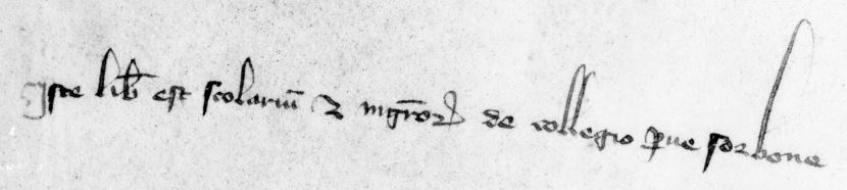 Iste lib̄ est scolariū ⁊ mgr̄oꝝ de collegio ꝑue sorbone